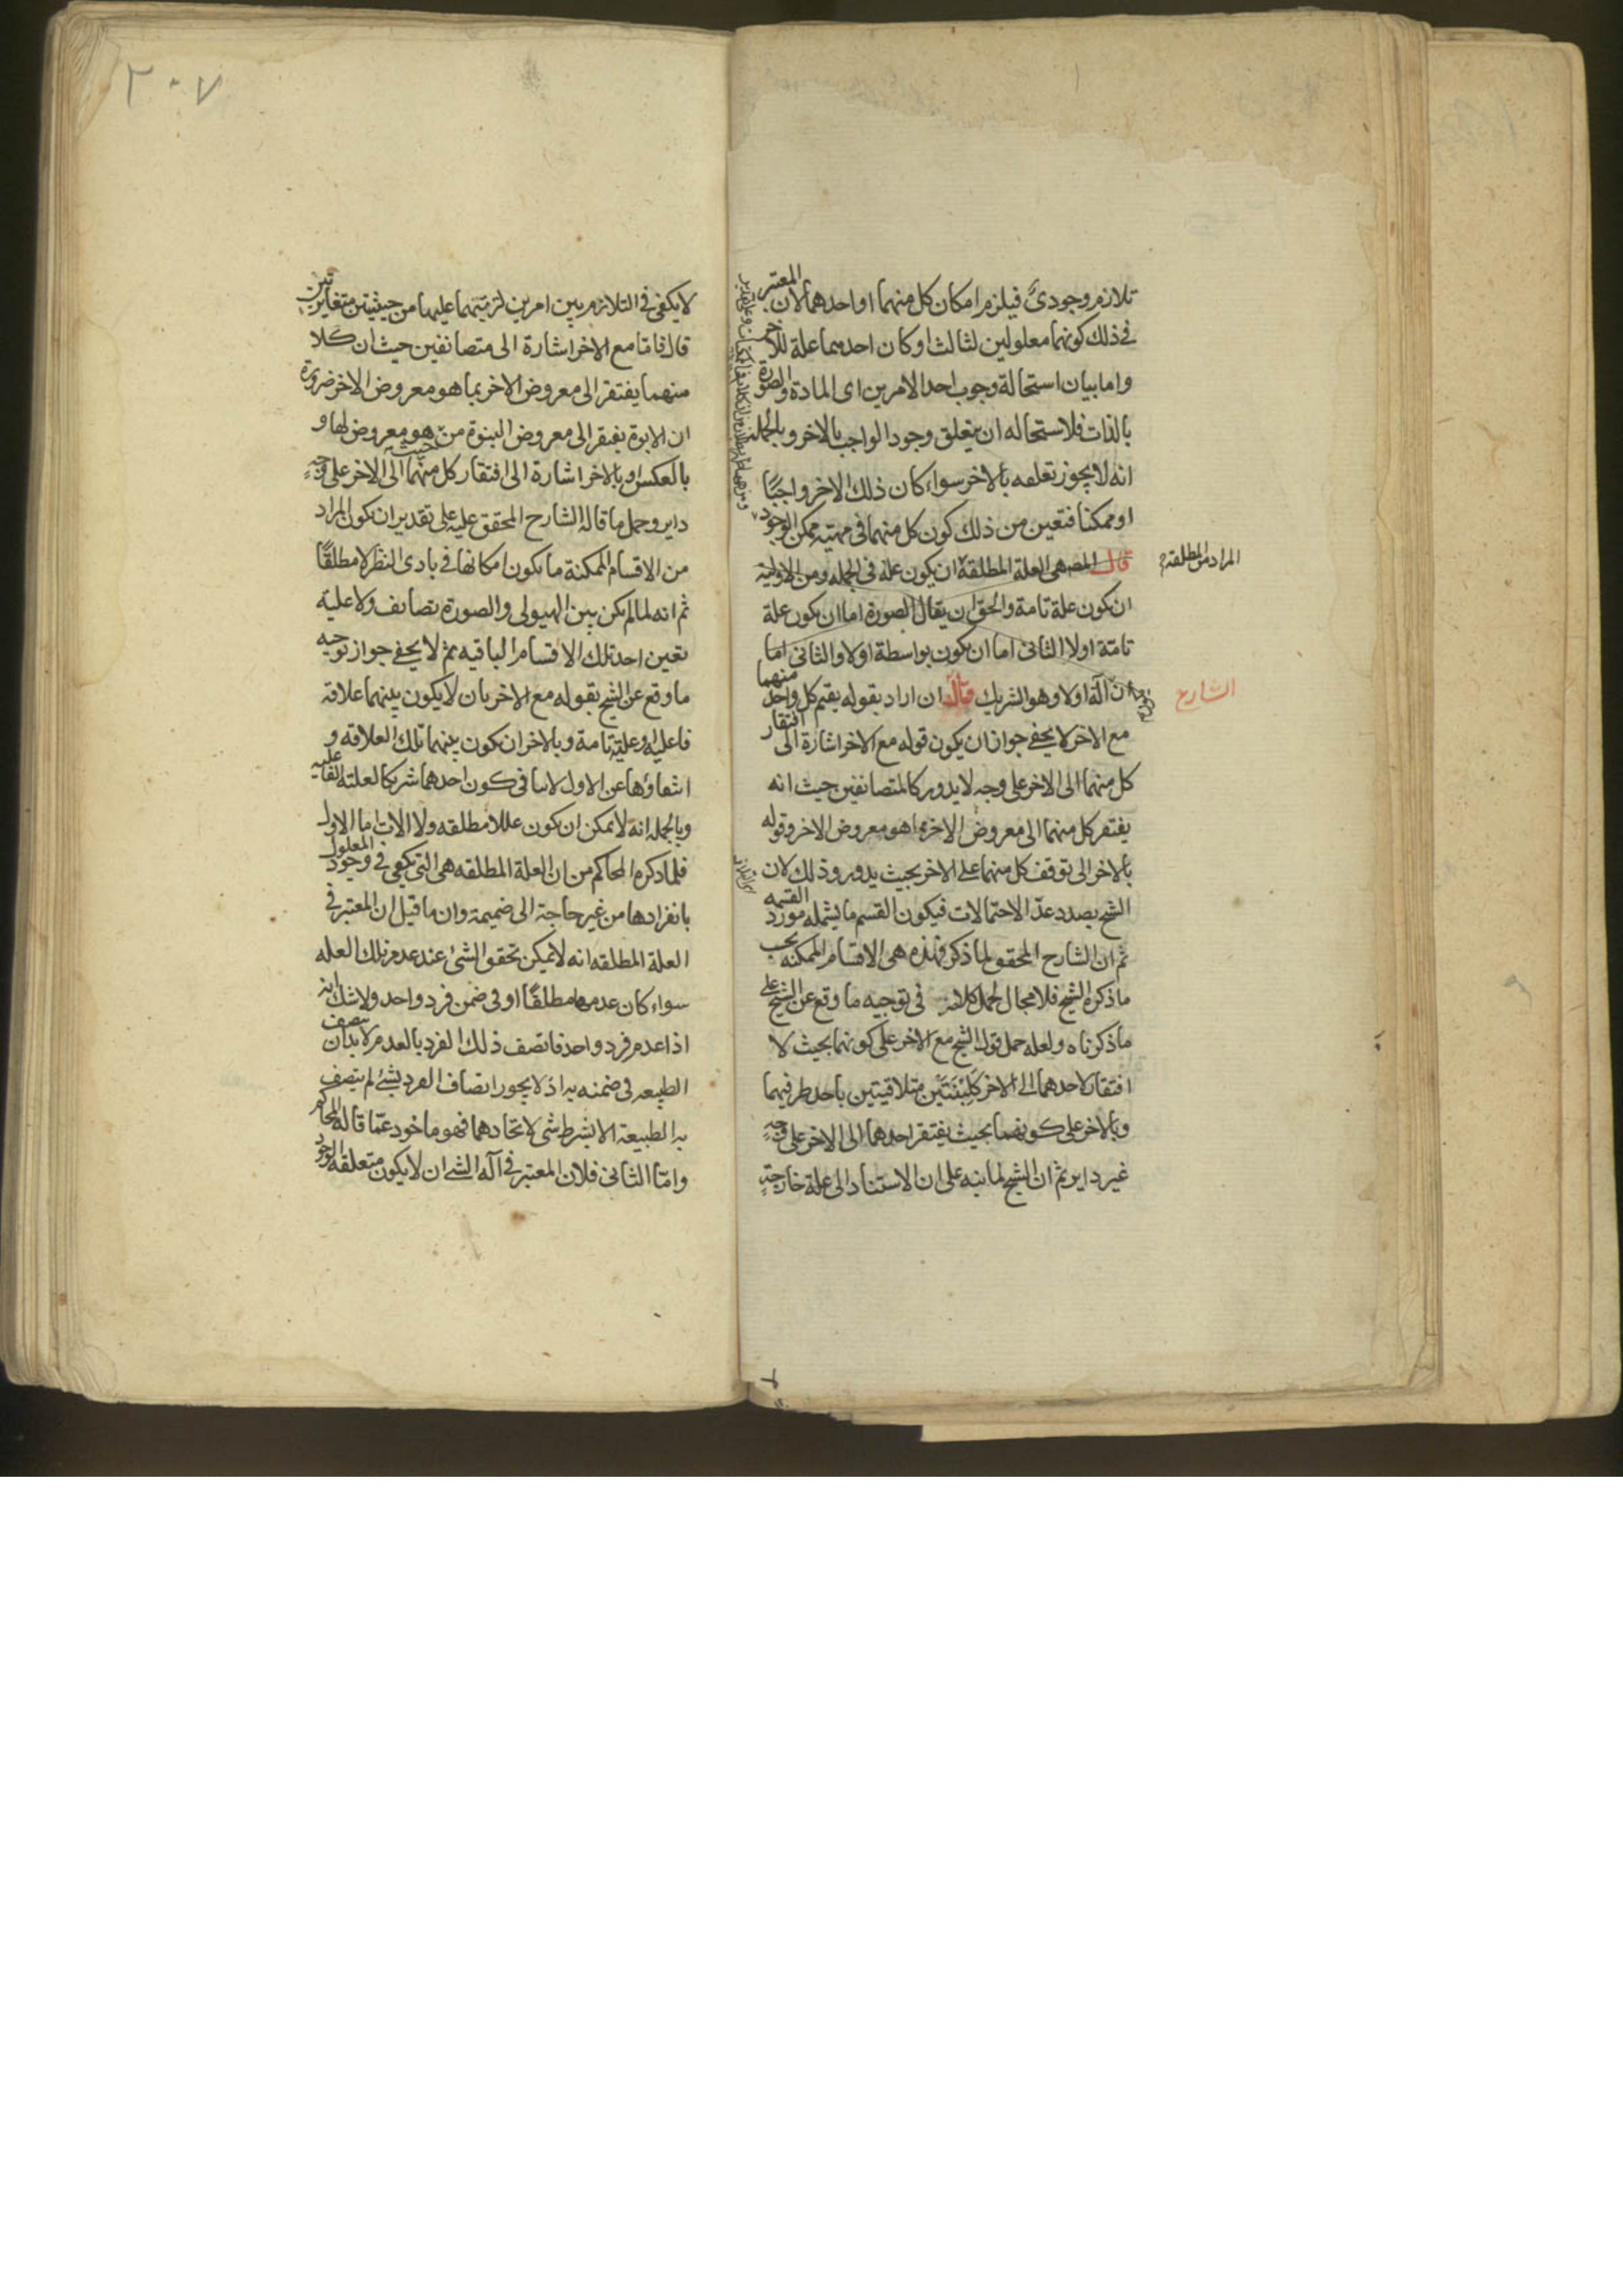 تلازم وجودى فيلزم امكان كل منهما او احدهما لان المعتبر
فى ذلك كونهما معلولين لثالث او كان احدهما علة للاخر
واما بيان استحالة وجوب احد الامرين اى المادة والصورة
بالذات فلاستحاله ان يتعلق وجود الواجب بالاخر وبالجمله
انه لا يجوز تعلقه بالاخر سواء كان ذلك الاخر واجبًا
او ممكنا فتعين من ذلك كون كل منهما فى مهيته ممكن الوجود
قال المصـ هى العلة المطلقة ان يكون علة فى الجمله ومن الاولية
المراد من المطلقة
ان يكون علة تامة والحق ان يقال الصورة اما ان يكون علة
تامّة اولا الثانى اما ان يكون بواسطة اولا والثانى اما
ان آلة اولا وهو الشريك قال ان اراد بقوله يقيم كل واحد منهما
الشارح
مع الاخر لا يخفى جواز ان يكون قوله مع الاخر اشارة الى افتقار
كل منهما الى الاخر على وجه لا يدور كالمتضائفين حيث انه
يفتقر كل منهما الى معروض الاخر بما هو معروض الاخر وقوله
بالاخر الى توقف كل منهما على الاخر بحيث يدور وذلك لان
الشيخ بصدد عدّ الاحتمالات فيكون القسم ما يشمله مورد القسمه
ثم ان الشارح المحقق لما ذكر فهذه هى الاقسام الممكنه بحسب
ما ذكره الشيخ فلا مجال لحمل كلامه فى توجيه ما وقع عن الشيخ على
ما ذكرناه ولعله حمل قول الشيخ مع الاخر على كونهما بحيث لا
افتقار لاحدهما الى الاخر كَلِبْنَتَيْن متلاقيتين باحد طرفيهما
وبالاخر على كونهما بحيث يفتقر احدهما الى الاخر على وجه
غير داير ثم ان الشيخ لما نبه على ان الاستناد الى علة خارجةٍ
٢٠٧
لا يكفى فى التلازم بين امرين لزميتهما عليهما من حيثيتين متغايرتين
قال فاما مع الاخر اشارة الى متضائفين حيث ان كلا
منهما يفتقر الى معروض الاخر بما هو معروض الاخر ضرورة
ان الابوة يفتقر الى معروض البنوة من حيث هو معروض لها و
بالعكس او بالاخر اشارة الى افتقار كل منهما الى الاخر على وجهٍ
داير وحمل ما قاله الشارح المحقق عليه على تقدير ان يكون المراد
من الاقسام الممكنة ما يكون امكانها فى بادى النظر لا مطلقًا
ثم انه لما لم يكن بين الهيولى والصورة تضايف ولا علية
تعين احد تلك الاقسام الباقيه ثم لا يخفى جواز توجيه
ما وقع عن الشيخ بقوله مع الاخر بان لا يكون بينهما علاقة
فاعلية وعلية تامة وبالاخر ان يكون بينهما تلك العلاقه و
انتفاؤها عن الاول لا ينافى كون احدهما شريكا لعلته الفاعليه
وبالجمله انه لا يمكن ان يكون عللا مطلقه ولا الات اما الاول
فلما ذكره المحاكم من ان العلة المطلقه هى التى يكفى فى وجود المعلول
بانفرادها من غير حاجة الى ضميمة وان ما قيل ان المعتبر فى
العلة المطلقه انه لا يمكن تحقق الشئ عند عدم تلك العله
سواء كان عدمها مطلقًا او فى ضمن فرد واحد ولا شك انه
اذا عدم فرد واحد فاتصف ذلك الفرد بالعدم لا بد ان يتصف
الطبيعه فى ضمنه به اذ لا يجوز اتصاف الفرد بشئ لم يتصف
به الطبيعة الابشرط شى لاتحادهما فهو ماخوذ عمّا قاله المحاكم
وامّا الثانى فلان المعتبر فى آله الشئ ان لا يكون متعلقه الوجود